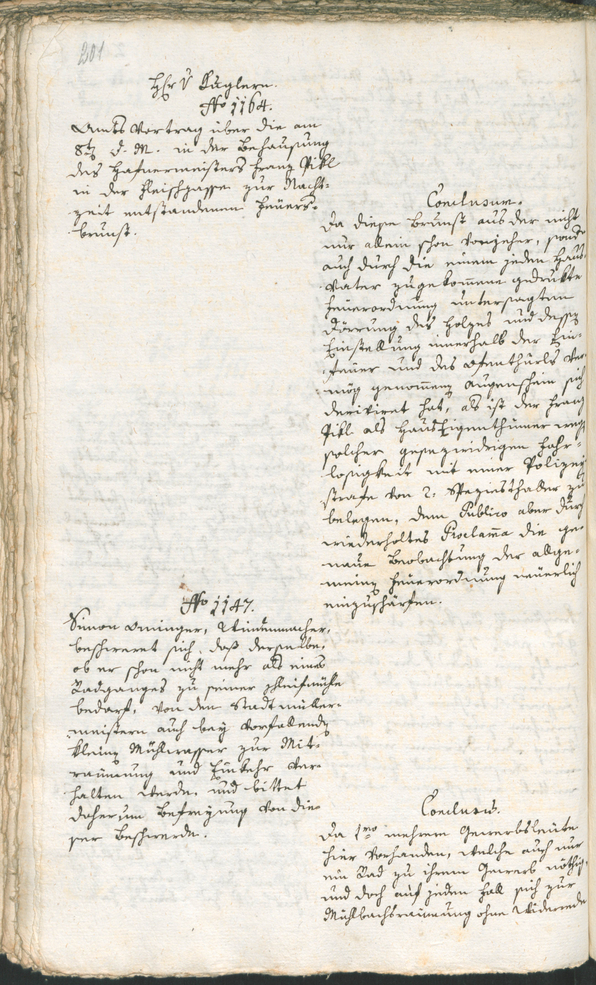 201
H. v Kuglern.
No 1164.
Amts Vortrag über die am
8t. d. M. in der Behausung
des Hafnermeisters Franz Pikl
in der Fleischgasse zur Nacht-
zeit entstandenen Feuers-
brunst.
Conclusum.
Da diese Brunst aus der nicht
nur allein schon vonjeher, sond
auch durch die einem jeden Haus-
Vater zugekommene gedrukte
Feuerordnung untersagten
Dörrung des Holzes und dessen
Einstellung innerhalb der Ein-
feuer und des Ofenthürls ver-
mög genommen Augenschein sich
deriviret hat, als ist der Franz
Pikl als HausEigenthümer wegen
solcher gesezwidrigen Fahr-
losigkeit mit einer Polizey
strafe von 2. Speziesthaller zu
belegen, dem Publico aber durch
wiederholtes Proclama die ge-
naue Beobachtung der allge-
meinen Feuerordnung neuerlich
einzuschärfen.
No 1147.
Simon Aminger, Windenmacher,
beschweret sich, daß derselbe,
ob er schon nicht mehr als eines
Radganges zu seiner Schleifmühle
bedarf, von den Stadtmüller-
meistern auch bey vorfallenden
kleinen Mühlwasser zur Mit-
raumung und Einkehr ver-
halten werde, und bittet
daherum Befreyung von die-
ser Beschwerde.
Conclusum.
Da 1mo mehrere Gewerbsleute
hier vorhanden, welche auch nur
ein Rad zu ihrem Gewerb nöthig,
und doch auf jeden Fall sich zur
Mühlbachsraumung ohne Widerrede